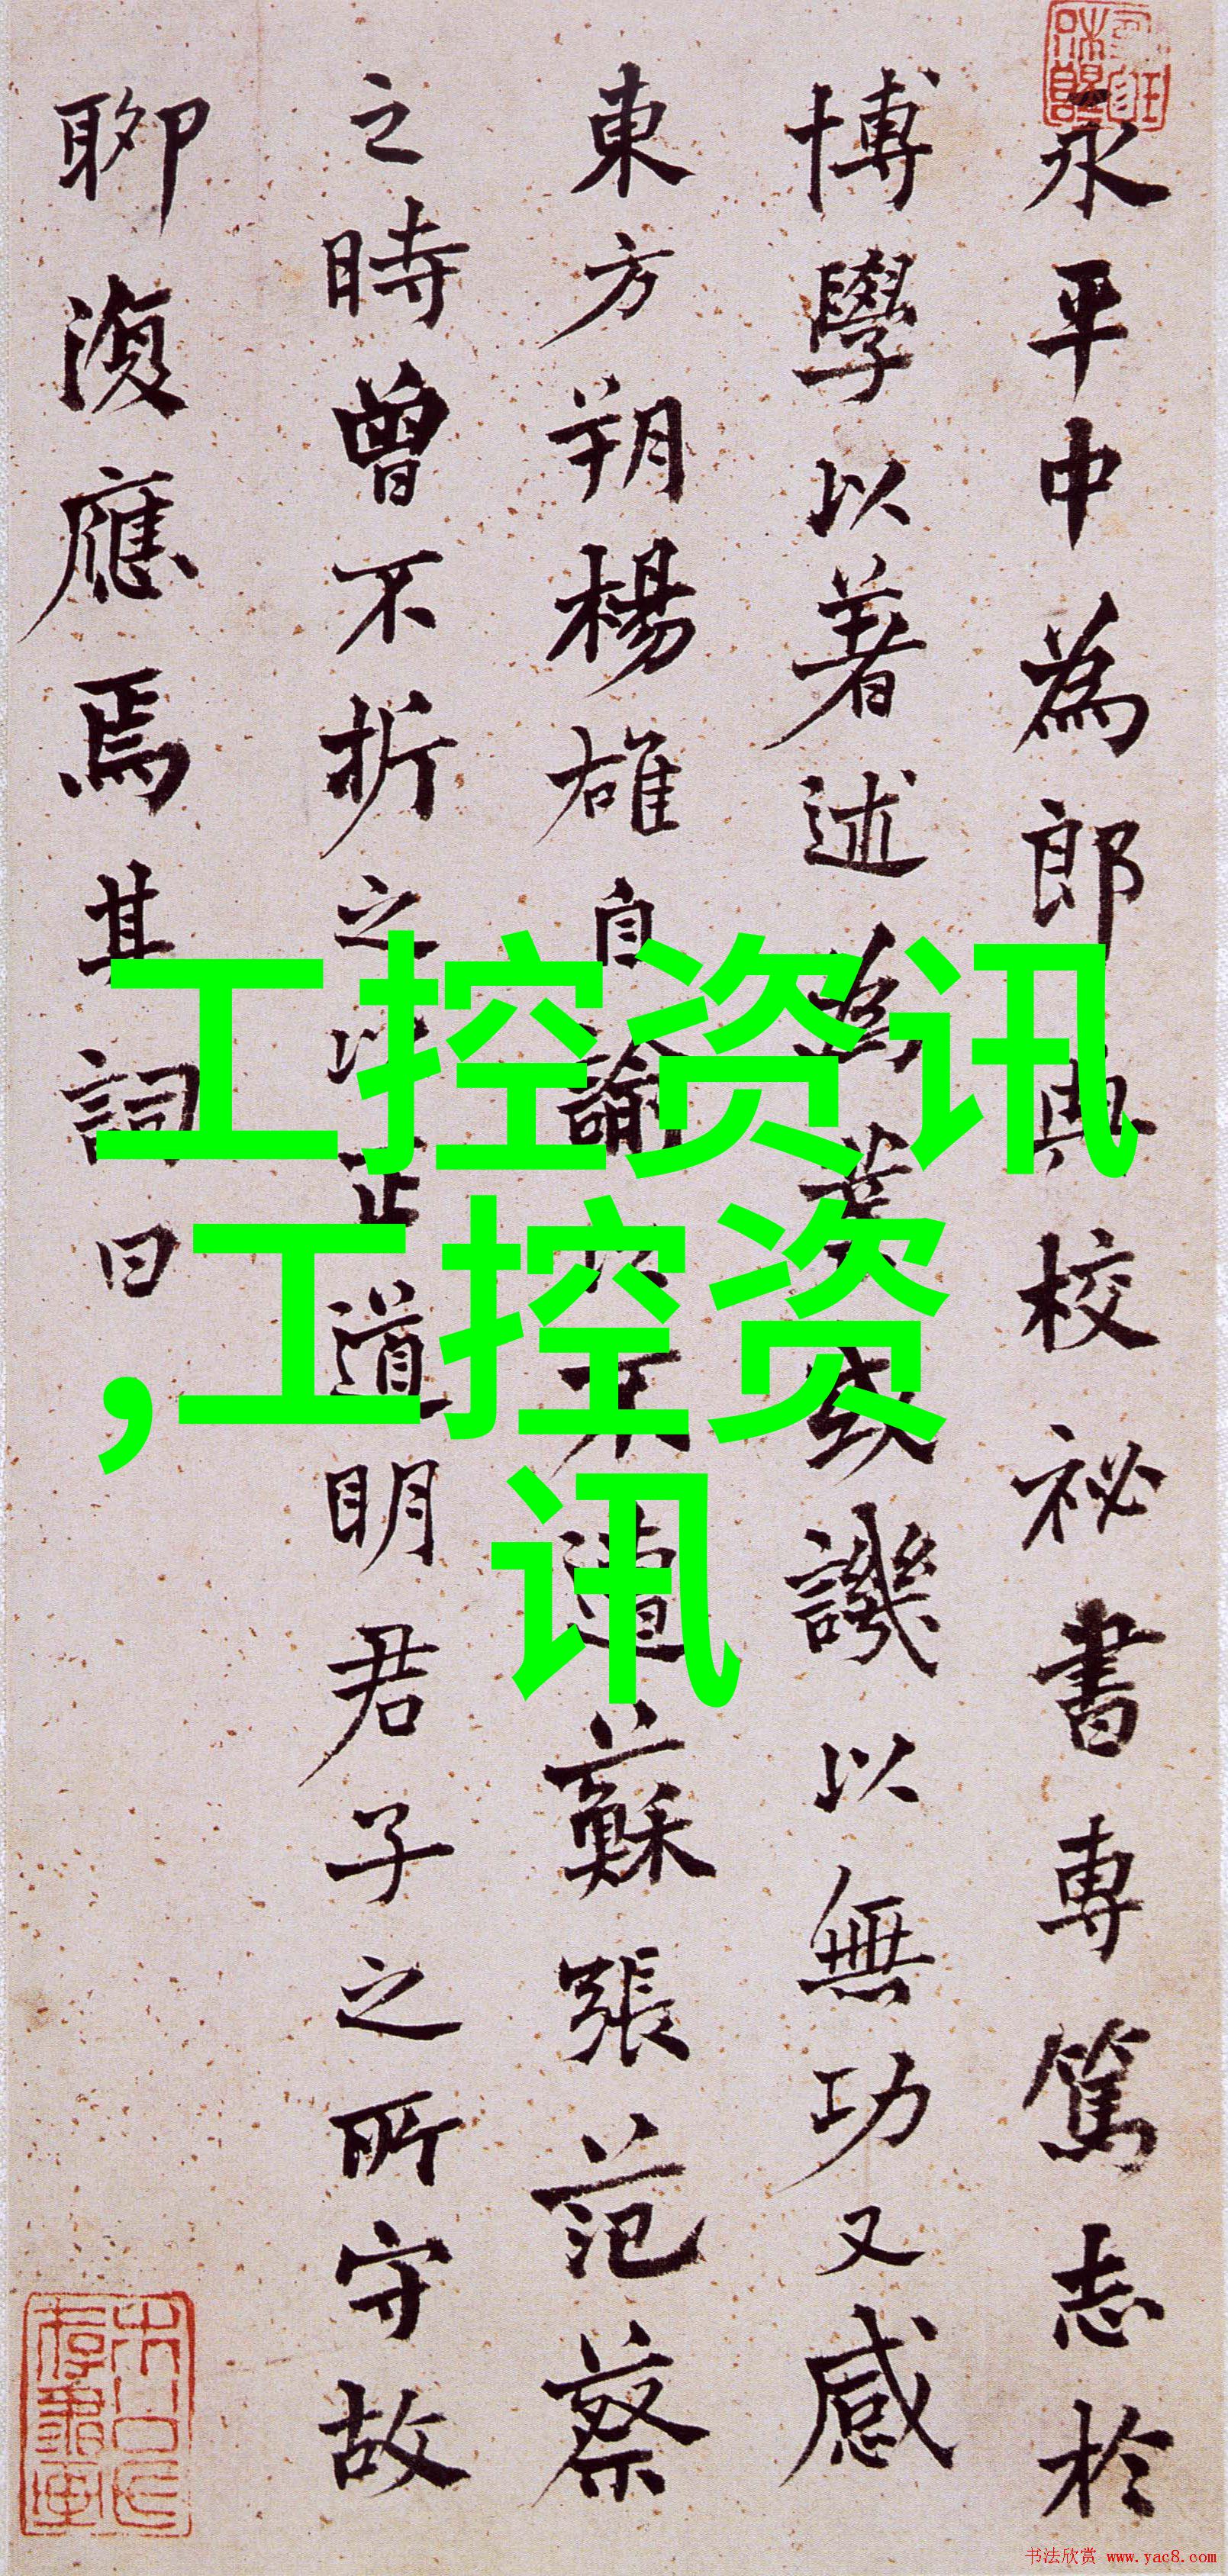 永平中為郎典校祕書專篤志於
博學以著述為業或譏以無功又感
東方朔楊雄自諭以不遭蘇張范蔡
之時曾不折之以正道明君子之所守故
聊復應焉其詞曰
工控资讯
,工控资
讯
书法欣赏 www.yac8.com